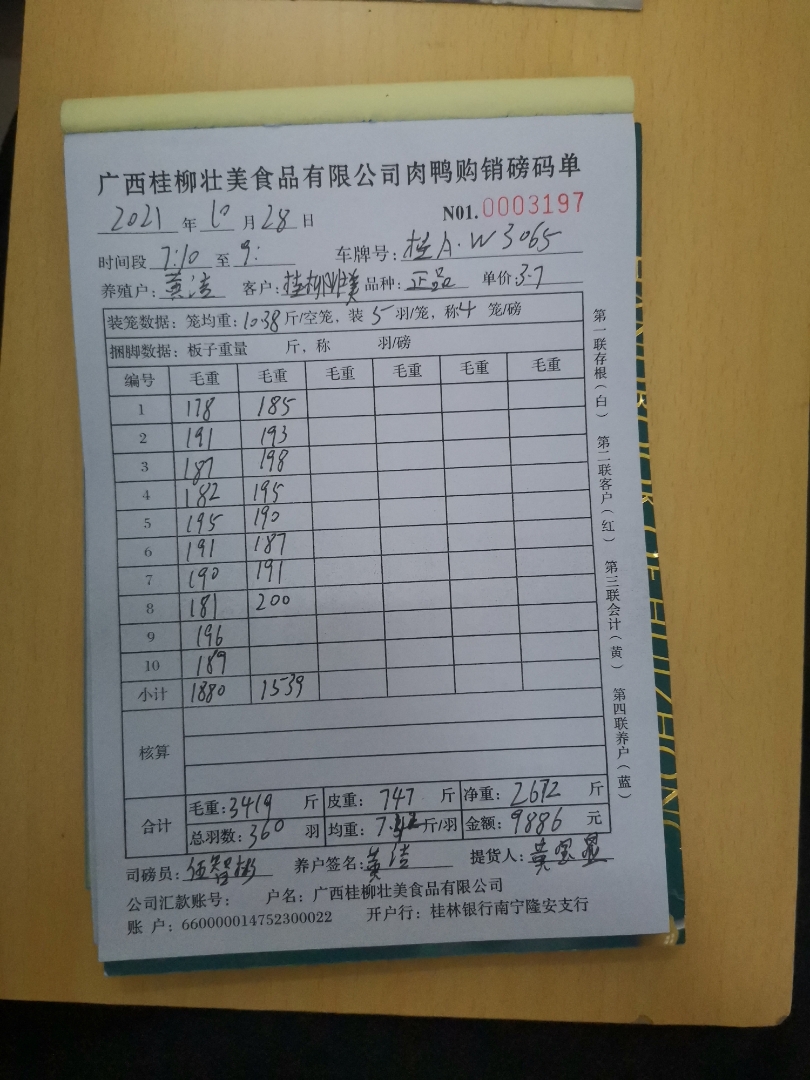 广西桂柳壮美食品有限公司肉鸭购销磅码单
2021 年 10 月 28 日 N01. 0003197
时间段 7:10 至 9: 车牌号: 桂A·W3065
养殖户: 黄洁 客户: 桂柳壮美 品种: 正品 单价: 3.7
装笼数据: 笼均重: 10.38 斤/空笼, 装 5 羽/笼, 称 4 笼/磅
捆脚数据: 板子重量 斤, 称 羽/磅
编号 毛重 毛重 毛重 毛重 毛重 毛重
1 178 185
2 191 193
3 187 198
4 182 195
5 195 190
6 191 187
7 190 191
8 181 200
9 196
10 189
小计 1880 1539
核算
合计 毛重: 3419 斤 皮重: 747 斤 净重: 2672 斤
总羽数: 360 羽 均重: 7. 斤/羽 金额: 9886 元
司磅员: 养户签名: 黄洁 提货人:
公司汇款账号: 户名: 广西桂柳壮美食品有限公司
账 户: 660000014752300022 开户行: 桂林银行南宁隆安支行
第一联存根(白) 第二联客户(红) 第三联会计(黄) 第四联养户(蓝)